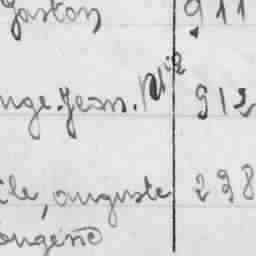 Gaston 911
nge. Jean. M ie 912
ile, auguste 298
ougène